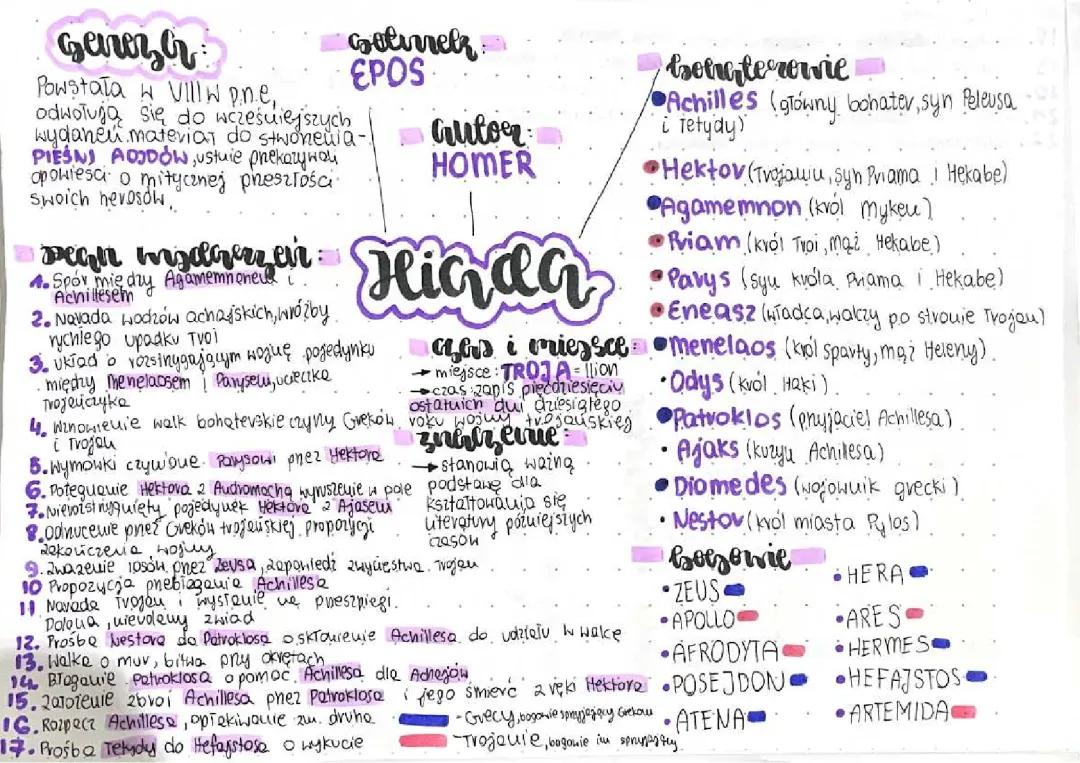 Geneza:
Powstała w VIII w p.n.e,
odwołują się do wcześniejszych
wydarzeń. materiał do stworzenia -
PIEŚNI AOJDÓW, ustnie przekazywali
opowieści o mitycznej przeszłości
swoich herosów.
Gatunek:
EPOS
autor:
HOMER
Iliada
Plan wydarzeń:
1. Spór między Agamemnonem i
Achillesem
2. Narada wodzów achajskich, wróżby
rychłego upadku Troi
3. Układ o rozstrzygającym wojnę pojedynku
między Menelaosem i Parysem, ucieczka
Trojańczyka
4. Wznowienie walk bohaterskie czyny Greków
i Trojan
5. Wymówki czynione Parysowi przez Hektora
6. Pożegnanie Hektora z Andromachą wyruszenie w pole
7. Nierozstrzygnięty pojedynek Hektora z Ajasem
8. Odrzucenie przez Greków trojańskiej propozycji
zakończenia wojny
9. Zważenie losów przez Zeusa, zapowiedź zwycięstwa Trojan
10 Propozycja przebłagania Achillesa
11 Narada Trojan i wysłanie na przeszpiegi
Dolona, nieudany zwiad
12. Prośba Nestora do Patroklosa o skłonienie Achillesa do udziału w walce
13. Walka o mur, bitwa przy okrętach
14 Błaganie Patroklosa o pomoc Achillesa dla Achajów
15. Założenie zbroi Achillesa przez Patroklosa i jego śmierć z ręki Hektora
16. Rozpacz Achillesa, opłakiwanie zm. druha
17. Prośba Tetydy do Hefajstosa o wykucie
czas i miejsce:
→ miejsce: TROJA = Ilion
→ czas: zapis pięćdziesięciu
ostatnich dni dziesiątego
roku wojny trojańskiej
znaczenie:
→ stanowią ważną
podstawę dla
kształtowania się
literatury późniejszych
czasów
- Grecy, bogowie sprzyjający Grekom
- Trojanie, bogowie im sprzyjający
bohaterowie
Achilles (główny bohater, syn Peleusa
i Tetydy)
Hektor (Trojanin, syn Priama i Hekabe)
Agamemnon (król Myken)
Priam (król Troi, mąż Hekabe)
Parys (syn króla Priama i Hekabe)
Eneasz (władca, walczy po stronie Trojan)
Menelaos (król Sparty, mąż Heleny)
• Odys (król Itaki)
Patroklos (przyjaciel Achillesa)
• Ajaks (kuzyn Achillesa)
• Diomedes (wojownik grecki)
• Nestor (król miasta Pylos)
bogowie
• ZEUS
• APOLLO
• AFRODYTA
• POSEJDON
• ATENA
• HERA
• ARES
• HERMES
• HEFAJSTOS
• ARTEMIDA